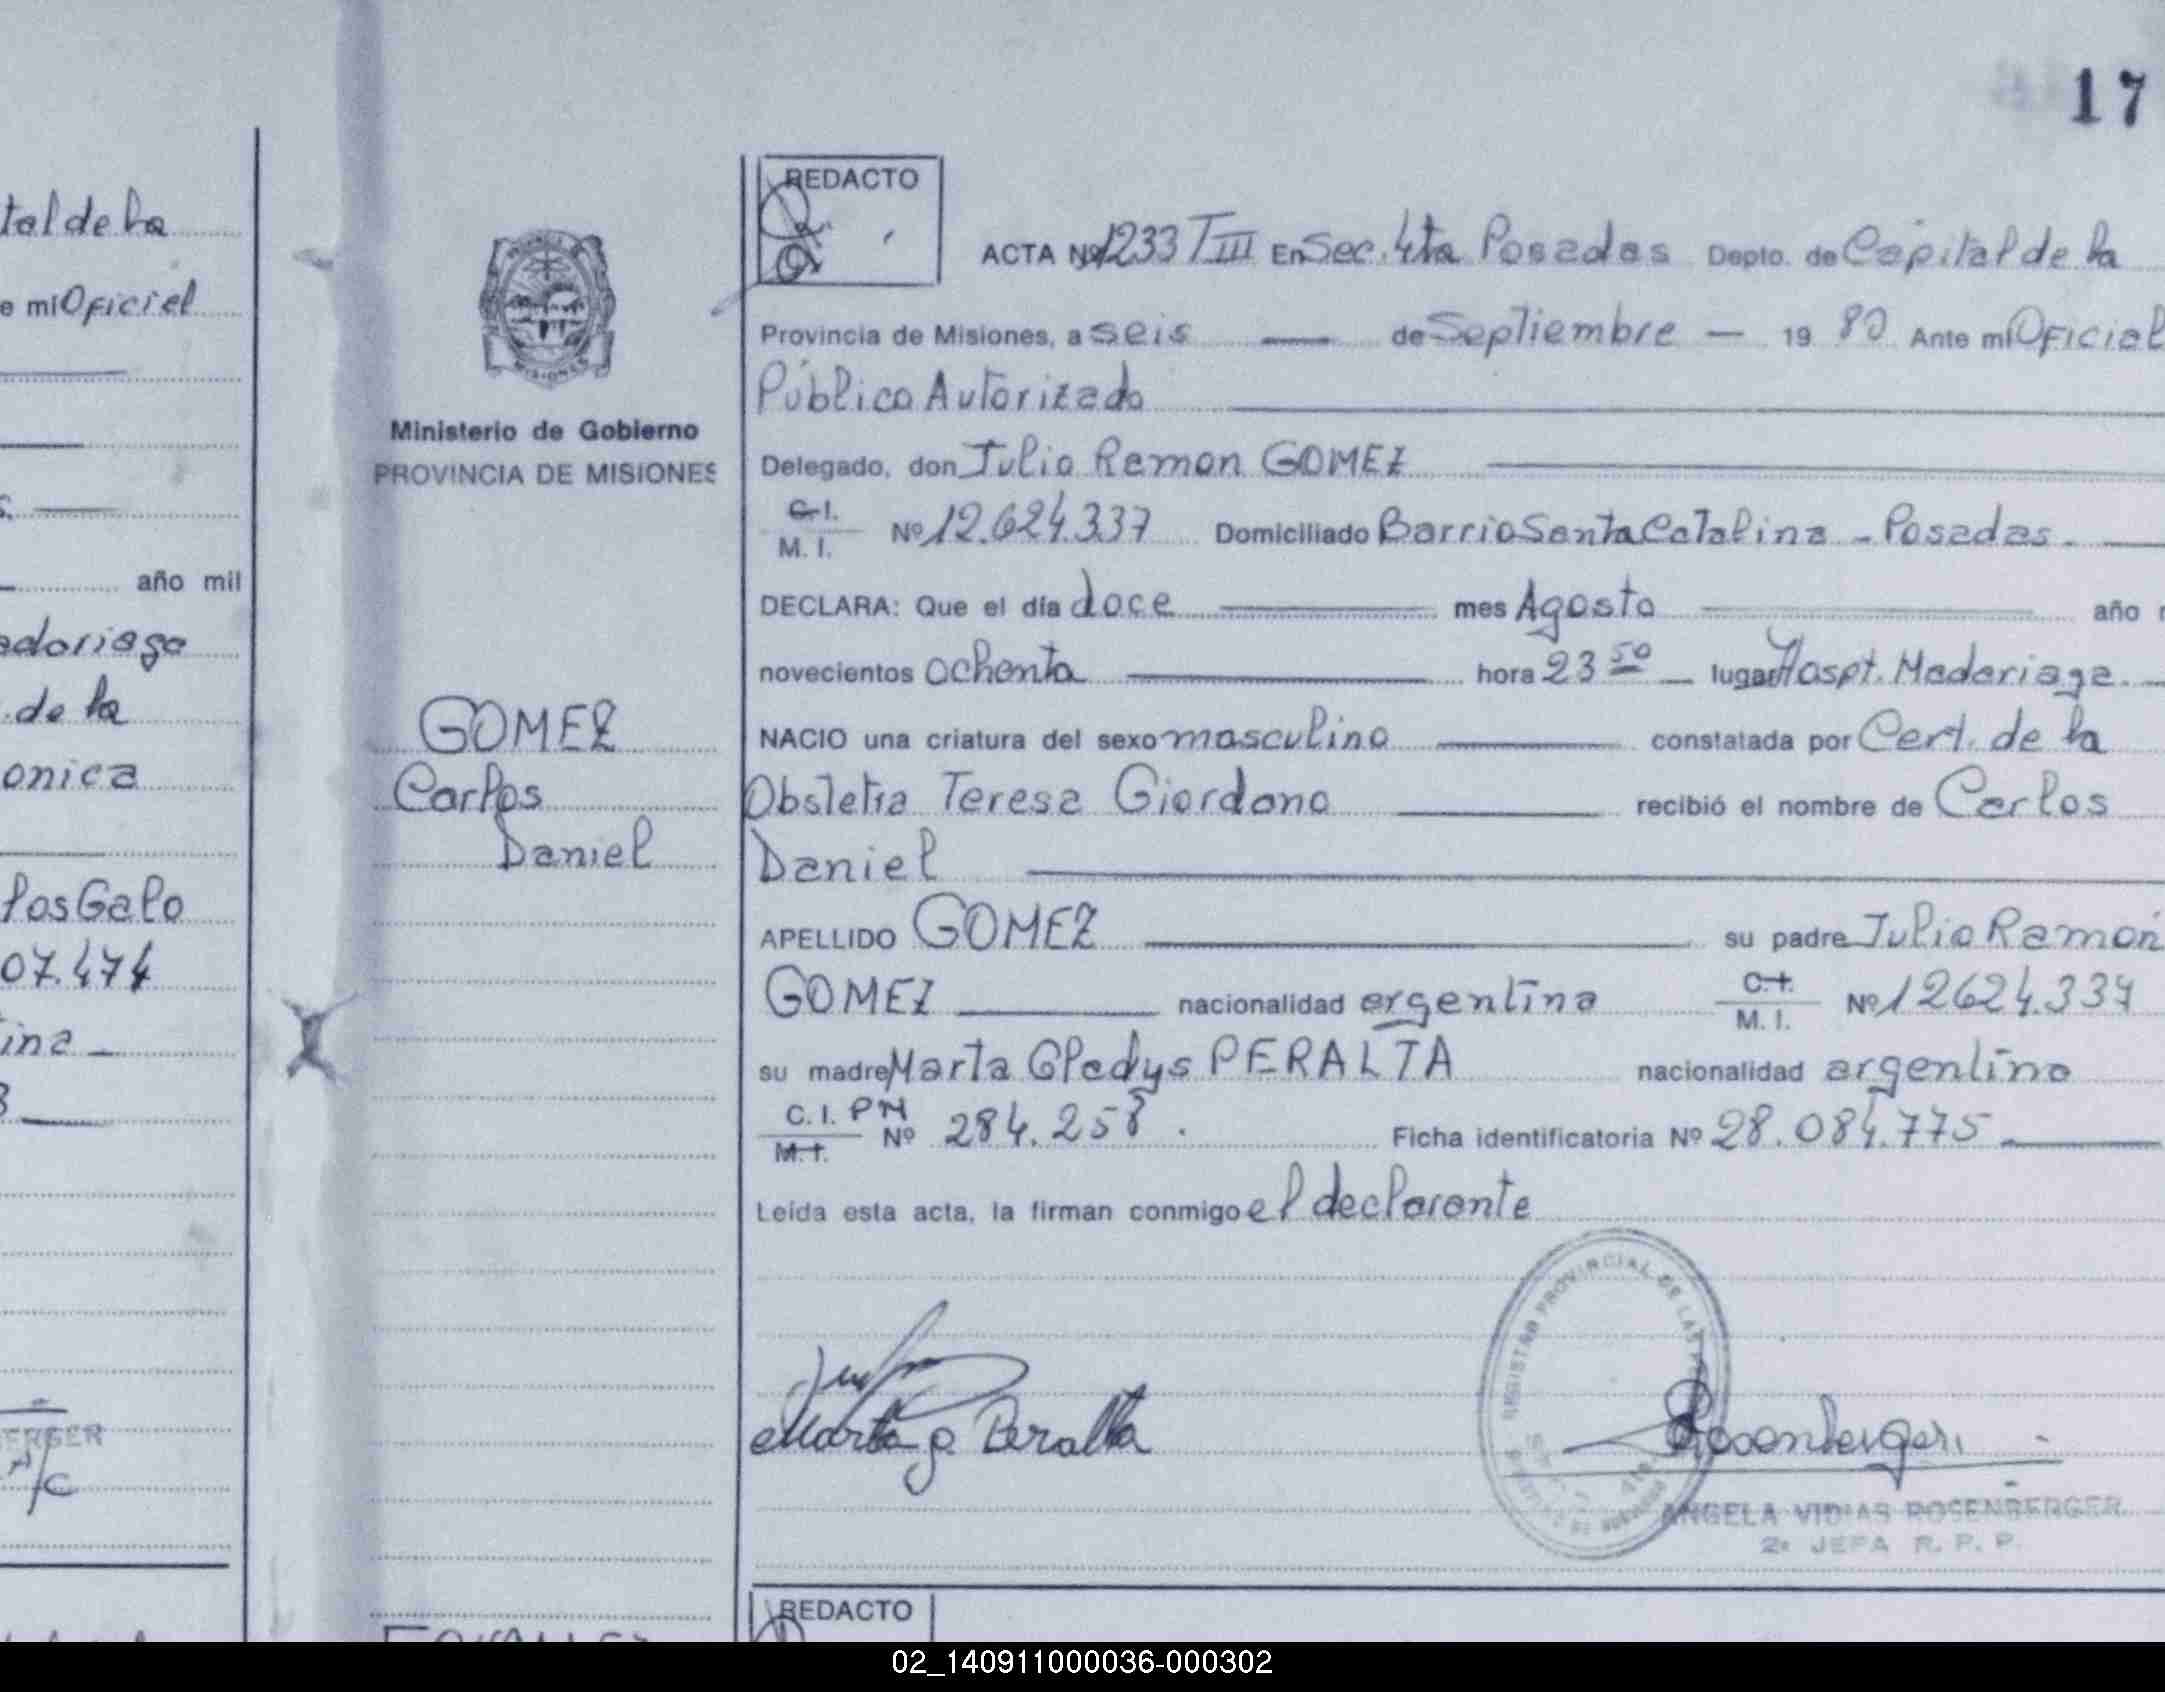 17
tal de la
e mi Oficial
s.
año mil
adariaga
. de la
onica
los Galo
07.474
ina -
3
ERGER
Ministerio de Gobierno
PROVINCIA DE MISIONES
GOMEZ
Carlos
Daniel
REDACTO
ACTA Nº 1233 T III En Sec. 4ta Posadas Depto. de Capital de la
Provincia de Misiones, a seis de Septiembre - 19 80 Ante mi Oficial
Público Autorizado
Delegado, don Julio Ramon GOMEZ
C.I.
M. I. Nº 12.624.337 Domiciliado Barrio Santa Catalina - Posadas.
DECLARA: Que el día doce mes Agosto año
novecientos ochenta hora 23 50 lugar Hospt. Madariaga.
NACIO una criatura del sexo masculino constatada por Cert. de la
Obstetra Teresa Giordano recibió el nombre de Carlos
Daniel
APELLIDO GOMEZ su padre Julio Ramón
GOMEZ nacionalidad argentina C.I.
M. I. Nº 12624.337
su madre Marta Gladys PERALTA nacionalidad argentina
C. I. PM
M.I. Nº 284.258. Ficha identificatoria Nº 28.084.775
Leída esta acta, la firman conmigo el declarante
REGISTRO PROVINCIAL DE LAS
Marta g Peralta
Rosenberger
ANGELA VIDIAS ROSENBERGER
2ª JEFA R. P. P.
REDACTO
02_140911000036-000302